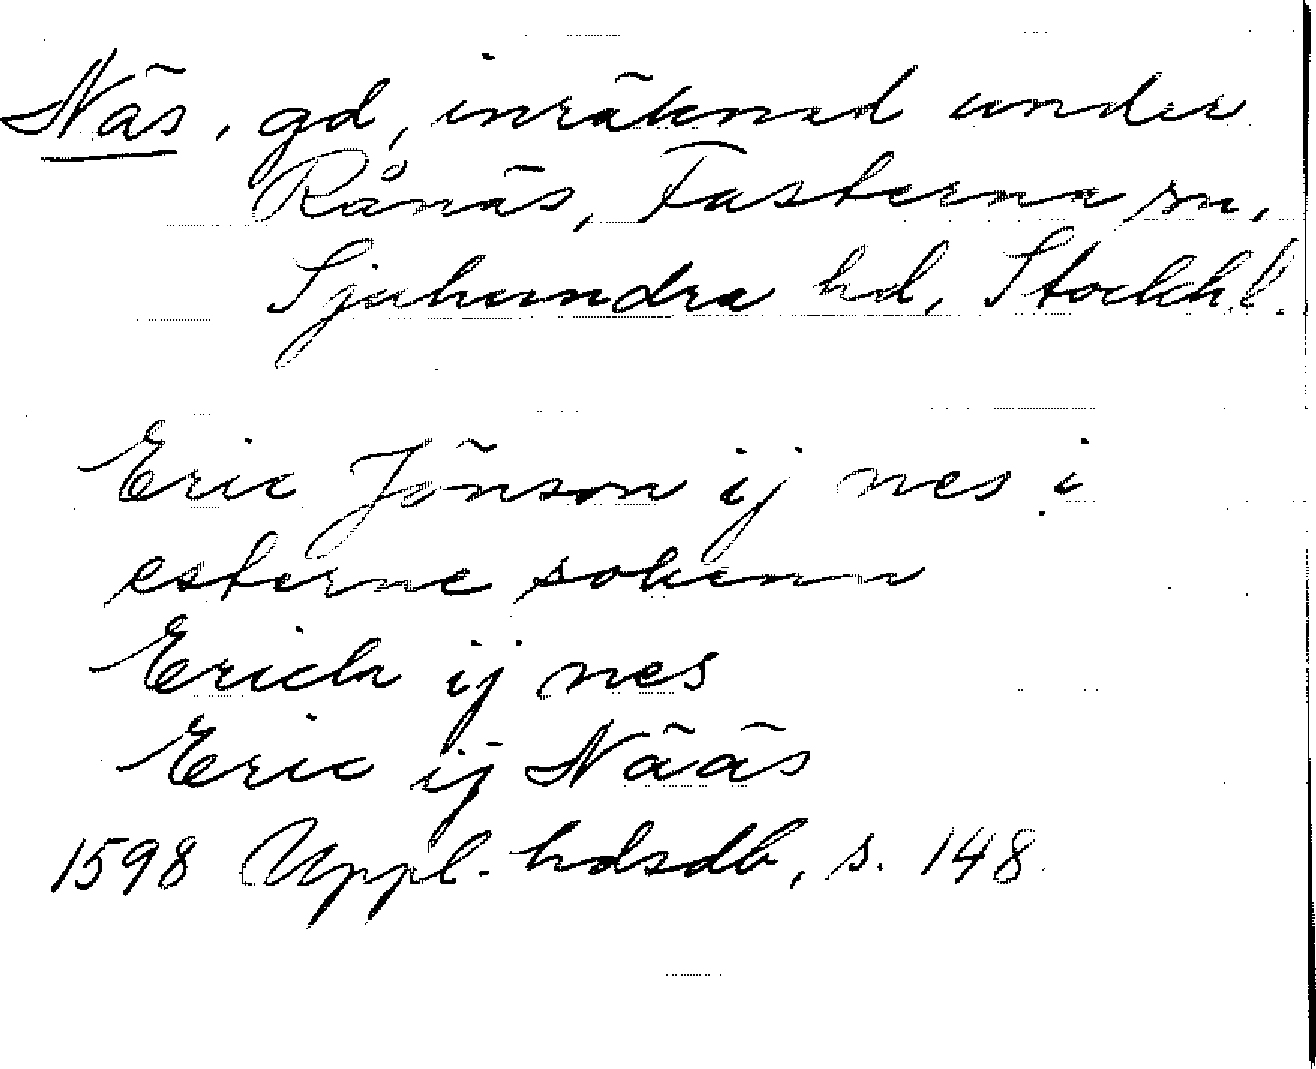 Näs, gd, inräknad under
Rånäs, Fasterna sn,
Sjuhundra hd, Stockh.l.
Eric Jönson ij nes i
esterne sokenn
Erich ij nes
Eric ij Nääs
1598 Uppl. hdsdb, s. 148